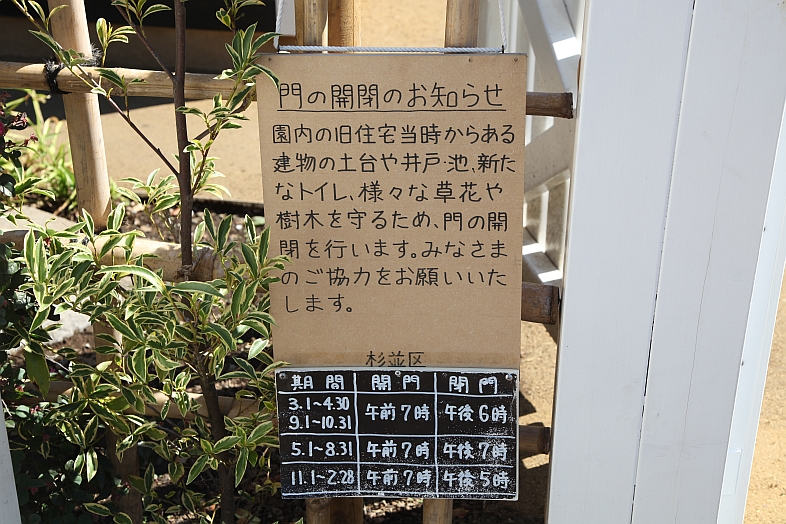 門の開閉のお知らせ
園内の旧住宅当時からある
建物の土台や井戸・池、新た
なトイレ、様々な草花や
樹木を守るため、門の開
閉を行います。みなさま
のご協力をお願いいた
します。
杉並区
期間 開門 閉門
3.1〜4.30
9.1〜10.31 午前7時 午後6時
5.1〜8.31 午前7時 午後7時
11.1〜2.28 午前7時 午後5時